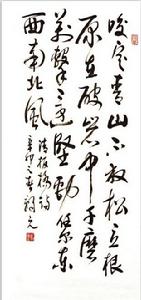 咬定青山不放松立根
原在破岩中千磨
萬擊還坚勁任尔东
西南北风
板桥诗
辛卯之春